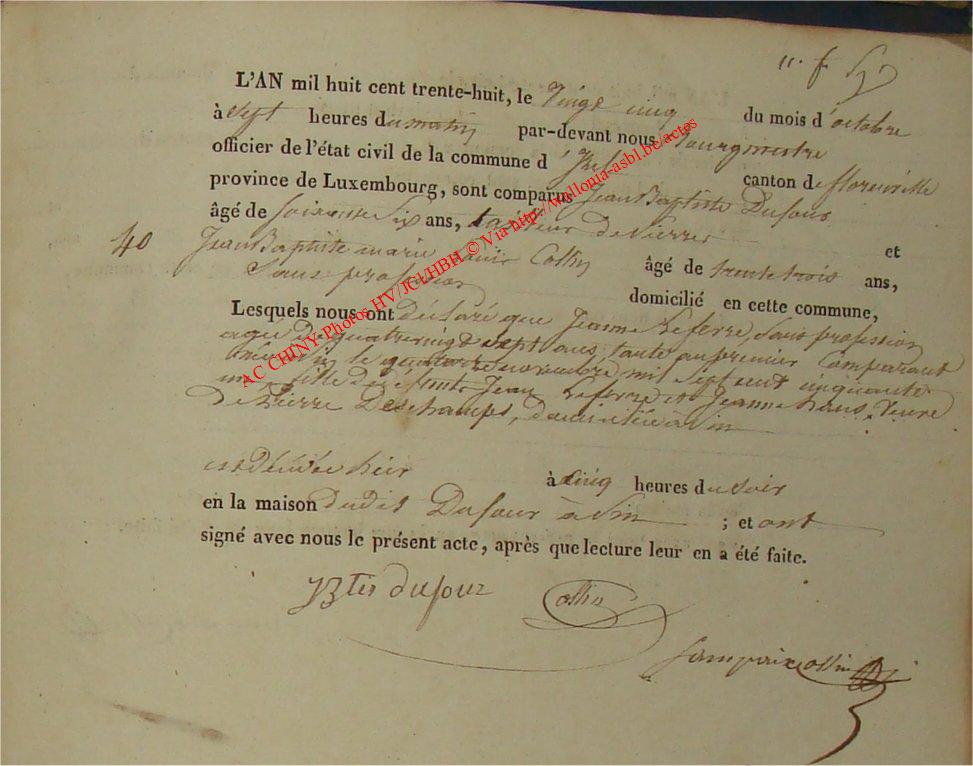 L'AN mil huit cent trente-huit, le Vingt cinq du mois d'octobre
à Sept heures du matin par-devant nous Bourgmestre
officier de l'état civil de la commune d' canton de florenville
province de Luxembourg, sont comparus Jean Baptiste Dufour
âgé de soixante six ans, de Pierres et
40 Jean Baptiste marie Collin âgé de trente trois ans,
Sans profession domicilié en cette commune,
Lesquels nous ont déclaré que Jeanne Leferre, Sans profession
agée de quatre vingt sept ans, tante au premier Comparant
le quatorze novembre mil sept cent cinquante
un fille de Jean Leferre et Jeanne hans, Veuve
de Pierre Deschamps, domiciliée à
est décédée hier à cinq heures du soir
en la maison dudit Dufour à ; et ont
signé avec nous le présent acte, après que lecture leur en a été faite.
JBte dufour Collin
AC CHINY-Photos HV/JCL/HBH © Via http://wallonia-asbl.be/actes